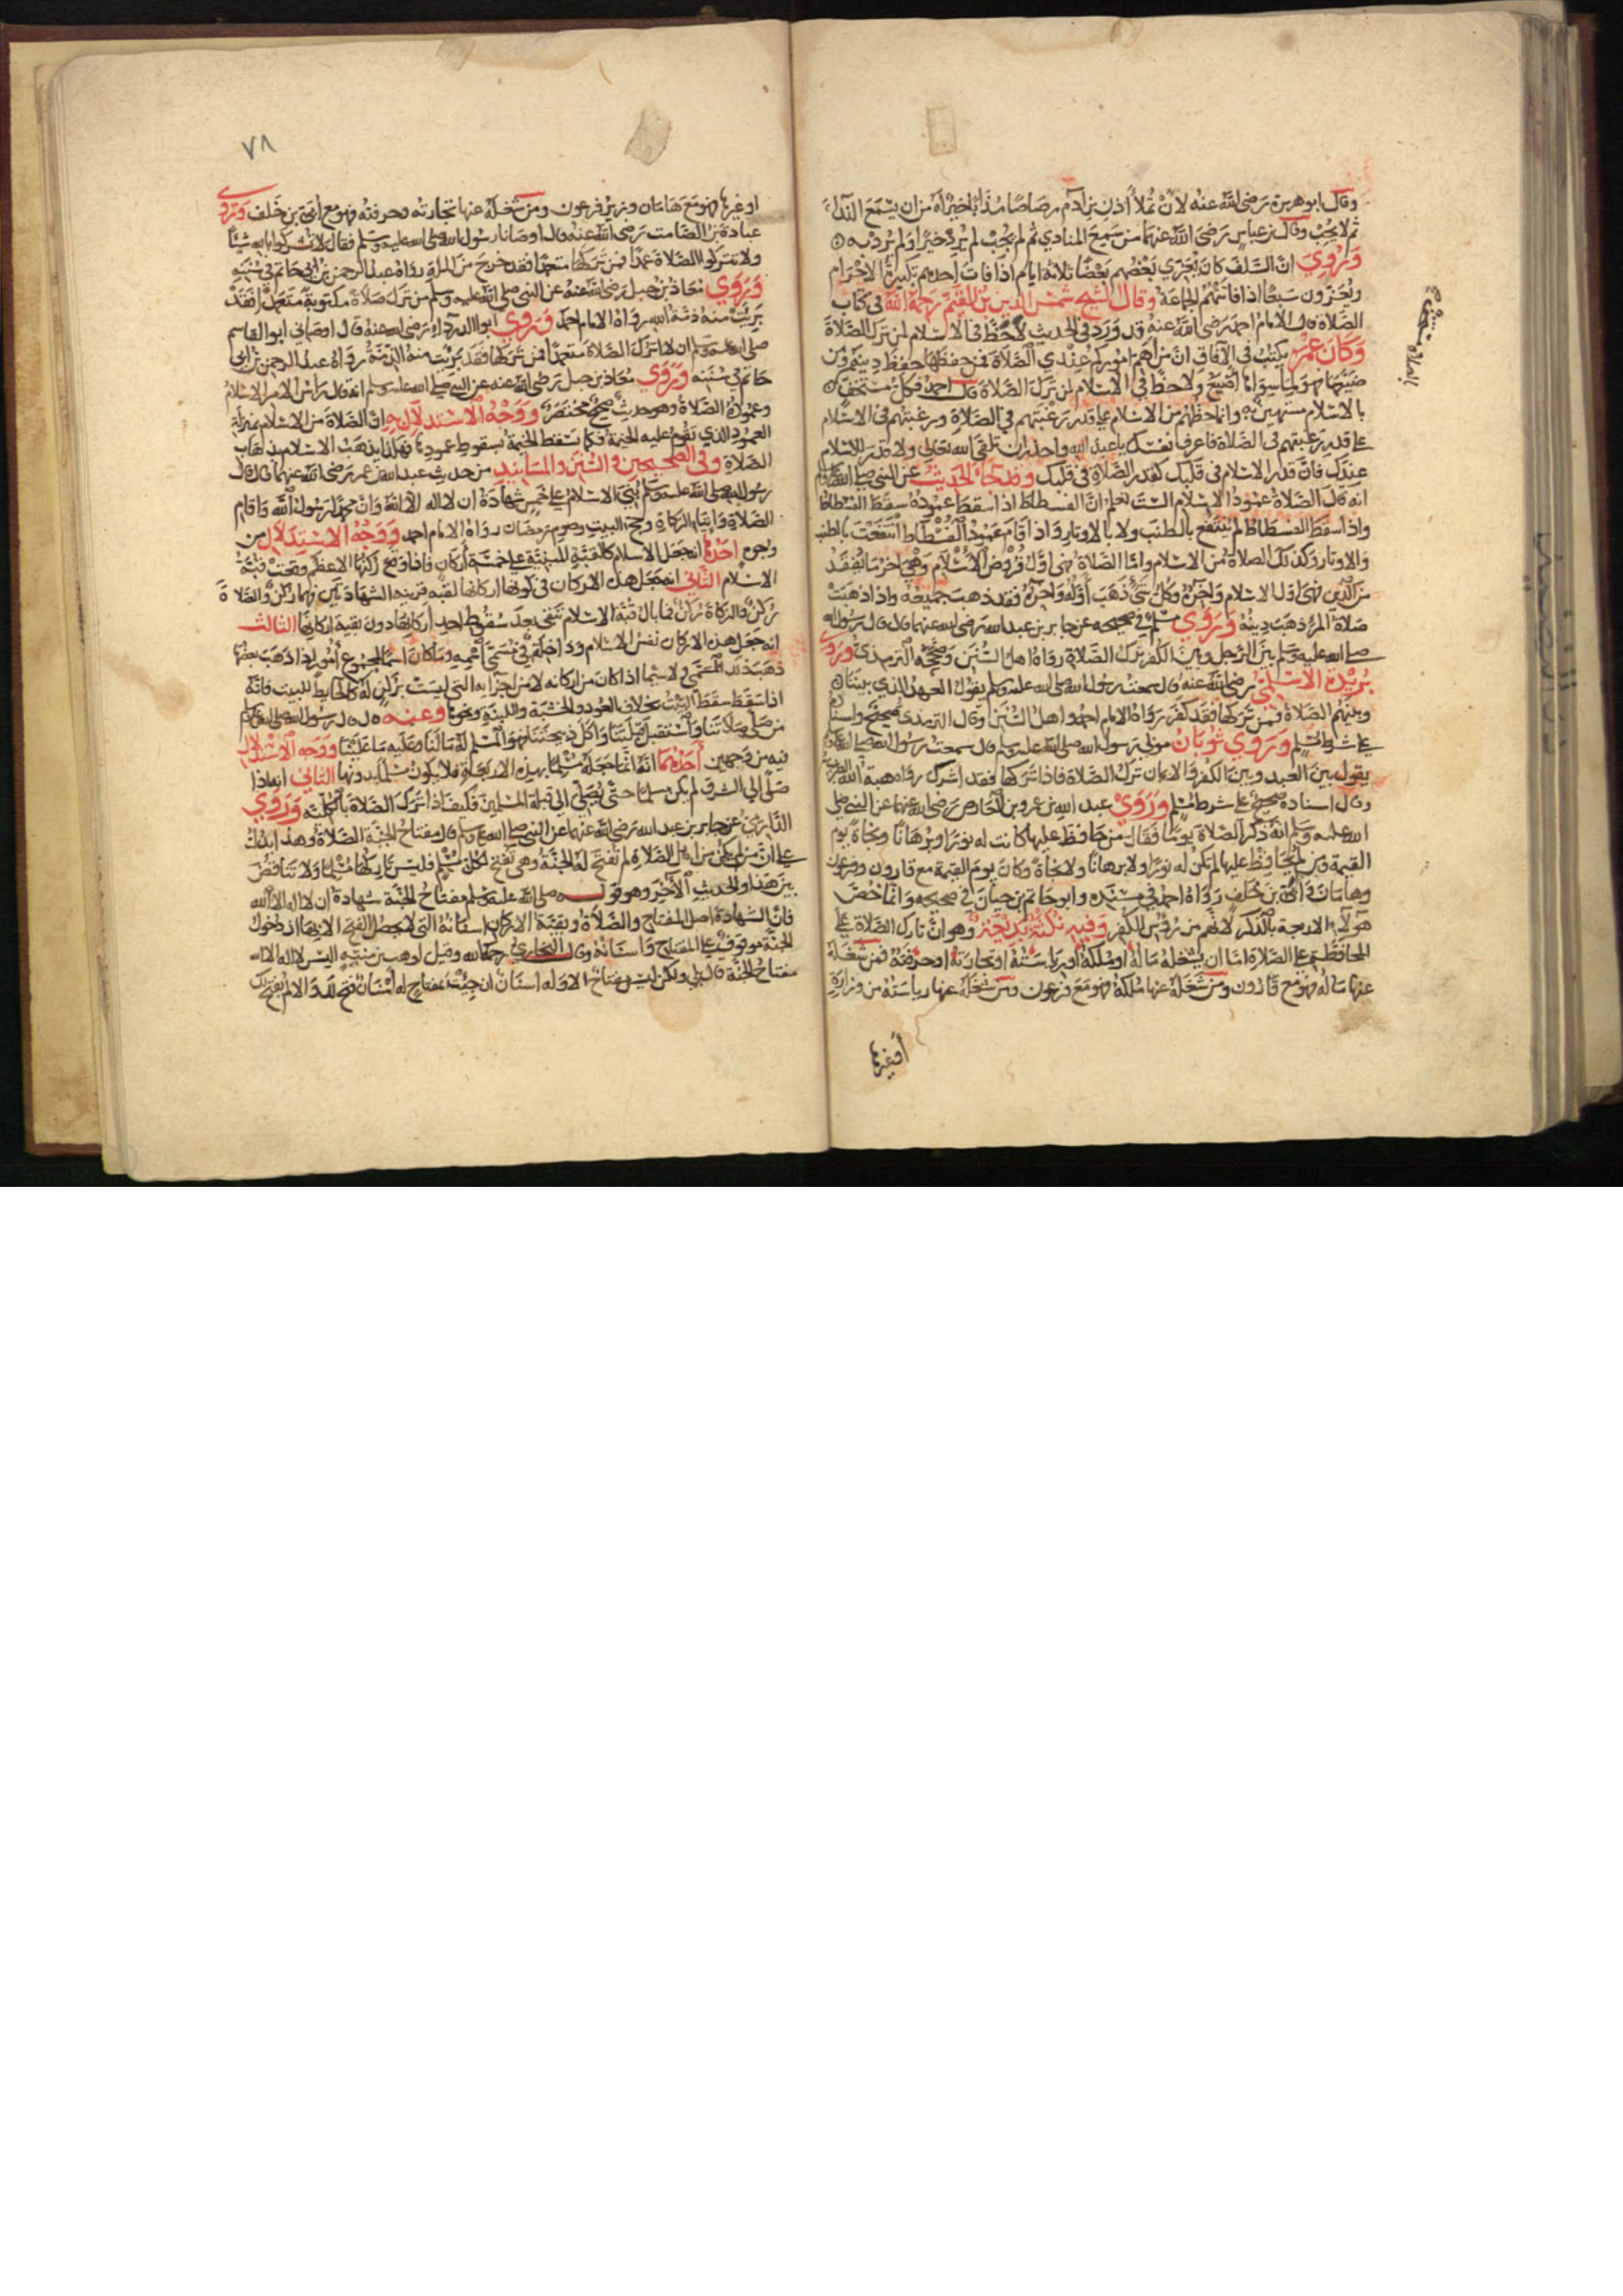 وقال ابو هريرة رضي الله عنه لان تملأ اذن بن آدم رصاصا مذابا خير له من ان يسمع الندآء
ثم لا يجب وقال بن عباس رضي الله عنهما من سمع المنادي ثم لم يجب لم يرد خيرا ولم يرد به
وروي ان السلف كان يعزي بعضهم بعضا ثلاثة ايام اذا فات احدهم تكبيرة الاحرام
ويعزون سبعا اذا فاتتهم الجماعة وقال الشيخ شمس الدين بن القيم رحمه الله في كتاب
الصلاة قال الامام احمد رضي الله عنه وقد ورد في الحديث لا حظ في الاسلام لمن ترك الصلاة
وكان عمر يكتب في الآفاق ان من اهم اموركم عندي الصلاة فمن حفظها حفظ دينه ومن
ضيعها فهو لما سواها اضيع ولا حظ في الاسلام لمن ترك الصلاة قال احمد فكل مستخف
بالاسلام مستهين به وانما حظهم من الاسلام على قدر رغبتهم في الصلاة ورغبتهم في الاسلام
على قدر رغبتهم في الصلاة فاعرف نفسك يا عبد الله واحذر ان تلقى الله تعالى ولا قدر للاسلام
عندك فان قدر الاسلام في قلبك كقدر الصلاة في قلبك وقد جاء الحديث عن النبي صلى الله عليه وسلم
انه قال الصلاة عمود الاسلام الست تعلم ان الفسطاط اذا سقط عموده سقط الفسطاط
واذا سقط الفسطاط لم ينتفع بالطنب ولا بالاوتار واذا قام عمود الفسطاط انتفعت بالطنب
والاوتار وكذلك الصلاة من الاسلام واما الصلاة فهي اول فروض الاسلام وهي اخر ما يفقد
من الدين فهي اول الاسلام وآخره وكل شيء ذهب اوله وآخره فقد ذهب جميعه واذا ذهبت
صلاة المرء ذهب دينه وروي مسلم في صحيحه عن جابر بن عبد الله رضي الله عنهما قال قال رسول الله
صلى الله عليه وسلم بين الرجل وبين الكفر ترك الصلاة رواه اهل السنن وصححه الترمذي وروي
بريدة الاسلمي رضي الله عنه قال سمعت رسول الله صلى الله عليه وسلم يقول العهد الذي بيننا
وبينهم الصلاة فمن تركها فقد كفر رواه الامام احمد واهل السنن وقال الترمذي صحيح واسناده
على شرط مسلم وروي ثوبان مولى رسول الله صلى الله عليه وسلم قال سمعت رسول الله صلى الله عليه وسلم
يقول بين العبد وبين الكفر والايمان ترك الصلاة فاذا تركها فقد اشرك رواه هبة الله الطبري
وقال اسناده صحيح على شرط مسلم وروي عبد الله بن عمرو بن العاص رضي الله عنهما عن النبي صلى
الله عليه وسلم انه ذكر الصلاة يوما فقال من حافظ عليها كانت له نورا وبرهانا ونجاة يوم
القيمة ومن لم يحافظ عليها لم تكن له نورا ولا برهانا ولا نجاة وكان يوم القيمة مع قارون وفرعون
وهامان وابي بن خلف رواه احمد في مسنده وابو حاتم بن حبان في صحيحه وانما خص
هولاء الاربعة بالذكر لانهم من رؤس الكفر وفيه نكتة بديعة وهو ان تارك الصلاة على
المحافظة على الصلاة اما ان يشغله ماله او ملكه او رياسته او تجارته او حرفته فمن شغله
عنها ماله فهو مع قارون ومن شغله عنها ملكه فهو مع فرعون ومن شغله عنها رياسته من وزارة
او غيرها
٧٨
او غيرها فهو مع هامان وزير فرعون ومن شغله عنها تجارته وحرفته فهو مع ابي بن خلف وروي
عبادة بن الصامت رضي الله عنه قال اوصانا رسول الله صلى الله عليه وسلم فقال لا تشركوا بالله شيئا
ولا تتركوا الصلاة عمدا فمن تركها متعمدا فقد خرج من الملة رواه عبد الرحمن بن ابي حاتم في سننه
وروي معاذ بن جبل رضي الله عنه عن النبي صلى الله عليه وسلم من ترك صلاة مكتوبة متعمدا فقد
بريت منه ذمة الله رواه الامام احمد وروي ابو الدردآء رضي الله عنه قال اوصاني ابو القاسم
صلى الله عليه وسلم ان لا اترك الصلاة متعمدا فمن تركها فقد بريت منه الذمة رواه عبد الرحمن بن ابي
حاتم في سننه وروي معاذ بن جبل رضي الله عنه عن النبي صلى الله عليه وسلم انه قال راس الامر الاسلام
وعموده الصلاة وهو حديث صحيح مختصر ووجه الاستدلال به ان الصلاة من الاسلام بمنزلة
العمود الذي تقوم عليه الخيمة فكما تسقط الخيمة بسقوط عمودها فهكذا يذهب الاسلام بذهاب
الصلاة وفي الصحيحين والسنن والمسانيد من حديث عبد الله بن عمر رضي الله عنهما قال قال
رسول الله صلى الله عليه وسلم بني الاسلام على خمس شهادة ان لا اله الا الله وان محمدا رسول الله واقام
الصلاة وايتاء الزكاة وحج البيت وصوم رمضان رواه الامام احمد ووجه الاستدلال من
وجوه احدها انه جعل الاسلام كالقبة المبنية على خمسة اركان فاذا وقع ركنها الاعظم وقعت قبة
الاسلام الثاني انه جعل هذه الاركان في كونها اركانا لقبة قرينة الشهادتين فهما ركن والصلاة
ركن والزكاة ركن فما بال قبة الاسلام تبقى بعد سقوط احد اركانها دون بقية اركانها الثالث
انه جعل هذه الاركان نفس الاسلام وداخلة في مسمى اسمه وما كان اسما لمجموع امور اذا ذهب بعضها
ذهب ذلك المسمى ولا سيما اذا كان من اركانه لا من اجزآئه التي ليست بركن له كالحايط للبيت فانه
اذا سقط سقط البيت بخلاف العود والخشبة واللبنة ونحوها وعنه قال قال رسول الله صلى الله عليه وسلم
من صلى صلاتنا واستقبل قبلتنا واكل ذبيحتنا فهو المسلم له ما لنا وعليه ما علينا ووجه الاستدلال
فيه من وجهين احدهما انه انما جعله مسلما بهذه الاربعة فلا يكون مسلما بدونها الثاني انه اذا
صلى الي الشرق لم يكن مسلما حتى يصلي الي قبلة المسلمين فكيف اذا ترك الصلاة بالكلية وروي
الدارمي عن جابر بن عبد الله رضي الله عنهما عن النبي صلى الله عليه وسلم قال مفتاح الجنة الصلاة وهذا يدلك
على ان من لم يكن من اهل الصلاة لم تفتح له الجنة وهي تفتح لكل مسلم فليس تاركها مسلما ولا تناقض
بين هذا والحديث الآخر وهو قوله صلى الله عليه وسلم مفتاح الجنة شهادة ان لا اله الا الله
فان الشهادة اصل المفتاح والصلاة وبقية الاركان اسنانه التي لا يحصل الفتح الا بها اذ دخول
الجنة موقوف على المفتاح واسنانه وقال البخاري رحمه الله وقيل لوهب بن منبه اليس لا اله الا الله
مفتاح الجنة قال بلى ولكن ليس مفتاح الا وله اسنان ان جئت بمفتاح له اسنان فتح لك والا لم يفتح لك